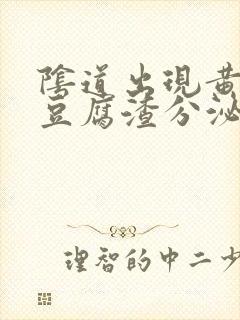 陰道出現黃
豆腐渣分泌
理智的中二少